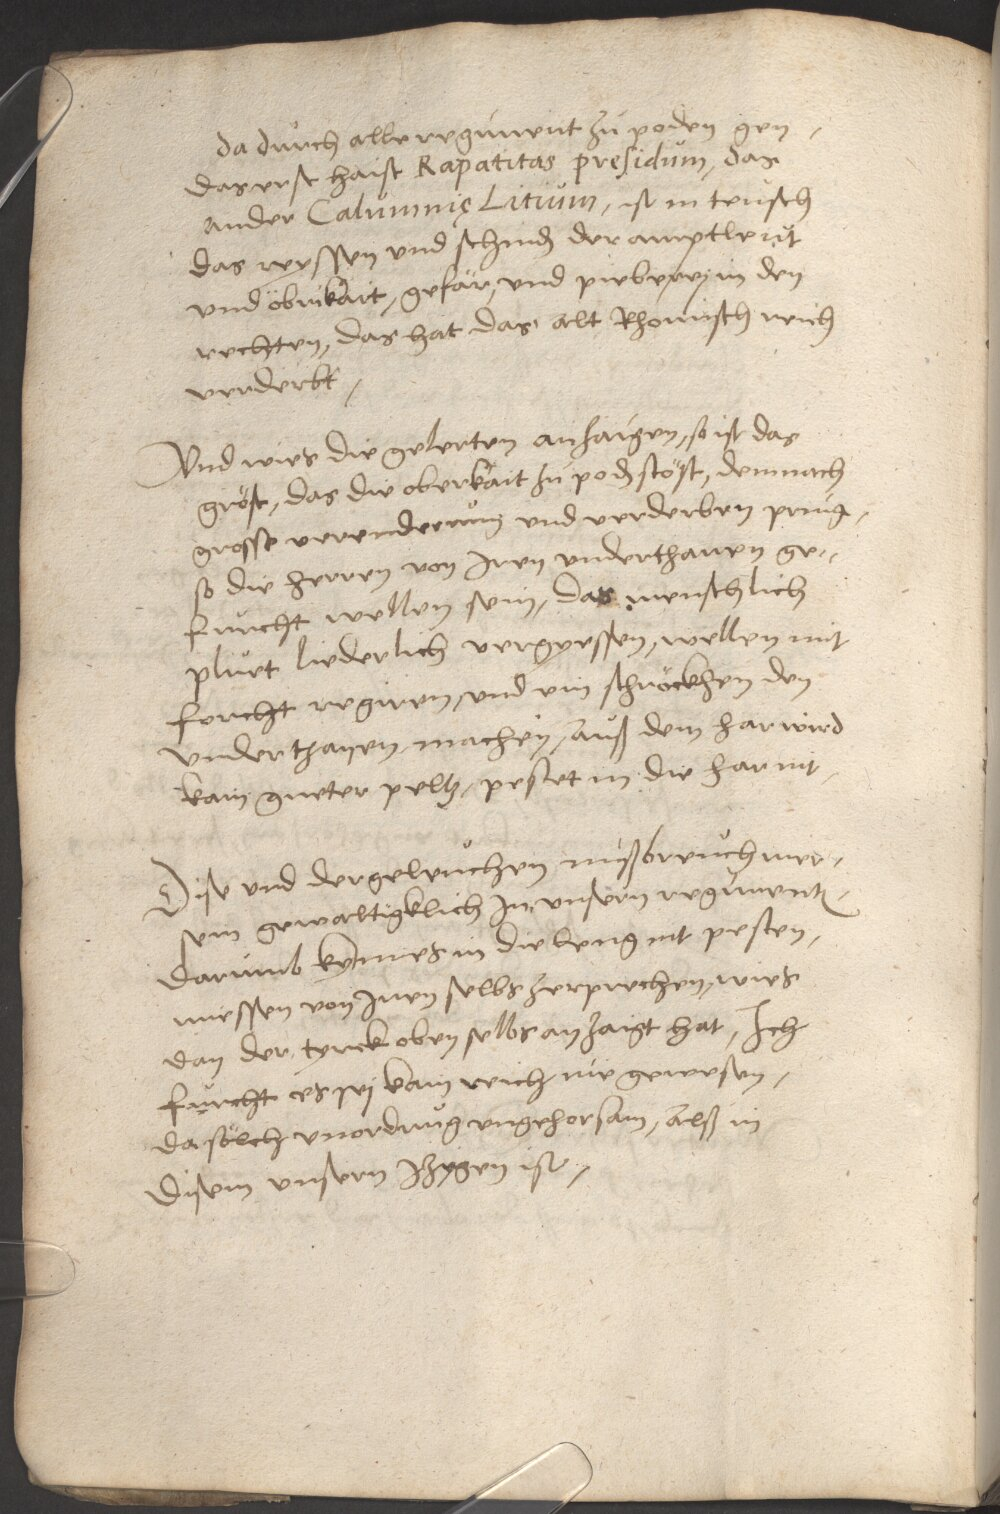 da durch alle regiment zu poden gen,
das erst haist Rapatitas presidum, das
ander Calumnię Litium, ist in teutsch
das reyssen und schindn der amptleut
und öbrikait, gefär, und pieberey in den
rechten, das hat das alt Rhomisch reich
verderbt,
Und wies die gelerten anzaigen, so ist das
gröst, das die oberkait zu podn stöst, demnach
grosse verenderung und verderben pringt,
so die herren von Iren underthanen ge-
furcht wellen sein, das menschlich
pluet liederlich vergyessen, wellen mit
forcht regiren, und ein schröckhen den
underthanen machen, auß dem har wird
kain gueter peltz, pestet in die har nit,
Dise und dergeleuchen mißbreuch mer
sein gewaltigklich In unsern regiment,
darumb kynnes in die leng nit pesten,
miessen von Inen selbs zerprechen, wies
dan der tyrck oben selbs anzaigt hat, Ich
furcht es sej kain reich nie gewesen,
da sölch unordnug ungehorsam, alß in
disem unsern yzigen ist,